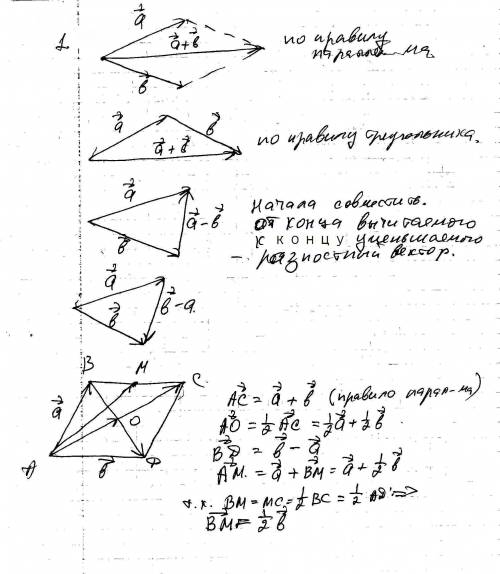 1
a⃗
a⃗+в⃗
в⃗
по правилу
парал ма
a⃗
в⃗
a⃗+в⃗
по правилу треугольника.
a⃗
a⃗-в⃗
в⃗
Начала совместить.
от конца вычитаемого
к концу уменьшаемого
- разностный вектор.
a⃗
в⃗
в⃗-a
B M C
a⃗
O
A в⃗ D
AC⃗ = a⃗ + в⃗ (правило парал-ма)
AO⃗ = 1/2 AC⃗ = 1/2 a⃗ + 1/2 в⃗
BD⃗ = в⃗ - a⃗
AM⃗ = a⃗ + BM⃗ = a⃗ + 1/2 в⃗
т.к. BM = MC = 1/2 BC = 1/2 AD =>
BM⃗ = 1/2 в⃗